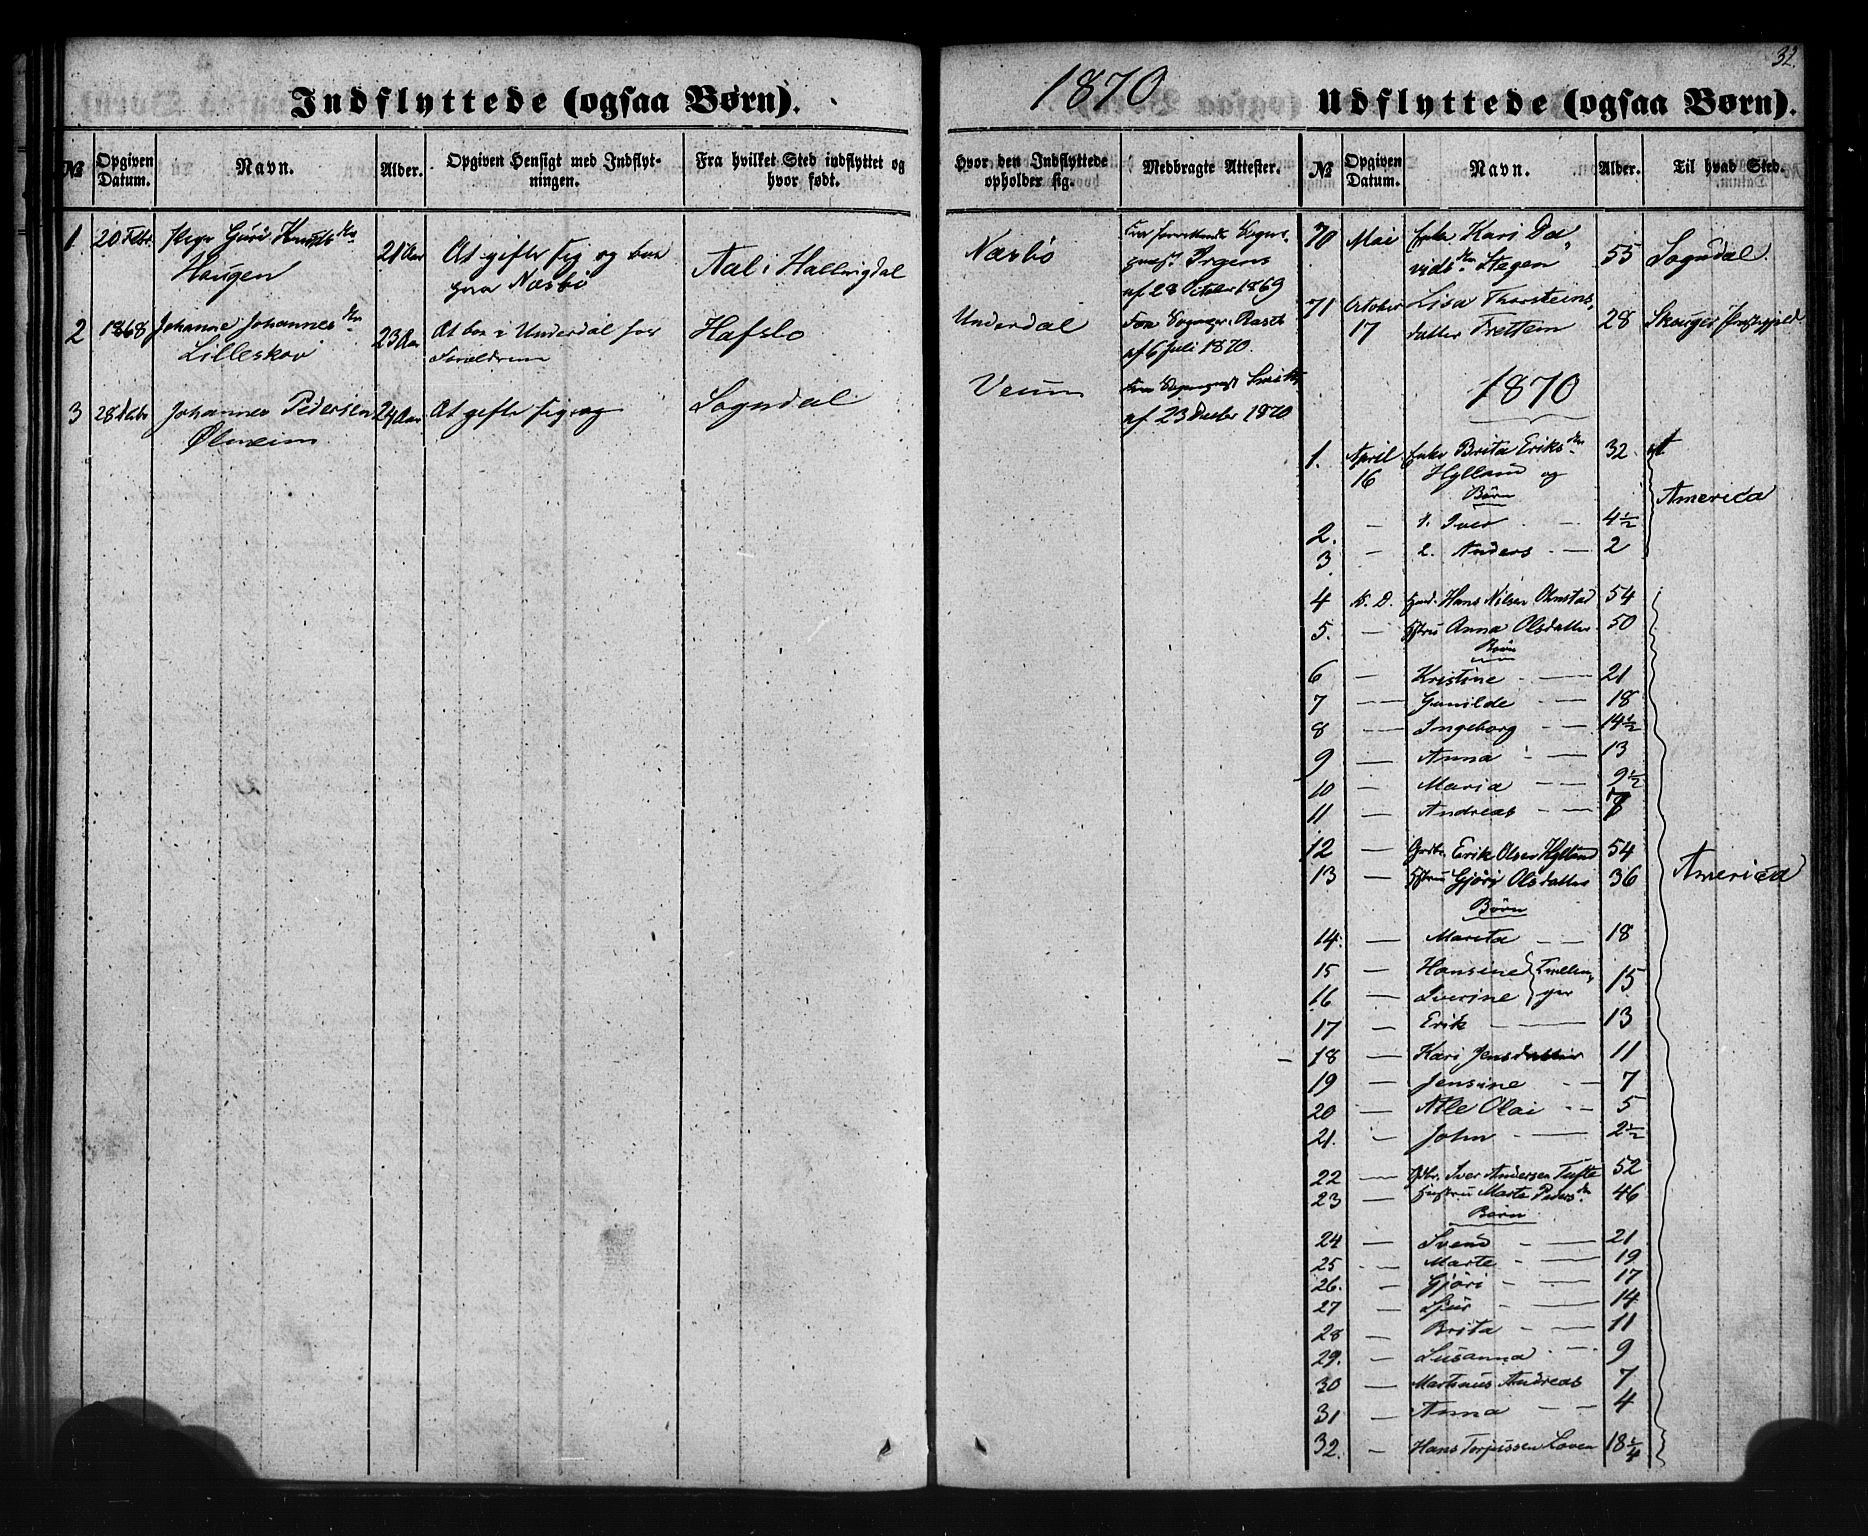 32.
Indflyttede (ogsaa Børn).
1870
Udflyttede (ogsaa Børn).
№ Opgiven Datum. Navn. Alder. Opgiven Hensigt med Indflytningen. Fra hvilket Sted indflyttet og hvor født.
Hvor den Indflyttede opholder sig. Medbragte Attester. № Opgiven Datum. Navn. Alder. Til hvad Sted.
1 20 Febr. Pige Guri Knuds dtr 21 Aar At gifte sig og boe Aal i Hallingdal Næsbö
Haugen paa Næsbö
af 28 October 1869
2 1868 Johanne Johannes dtr 23 Aar At boe i Underdal hos Hafslo Underdal
Lilleskov Forældrene af 6 Juli 1870.
3 28 Decbr Johannes Pedersen 24 Aar At gifte sig og Sogndal Veum
Ølmeim af 23 Decbr 1870
70 Mai Enke Kari Da„ 55 Sogndal.
vids dtr Stegen
71 October Lisa Thorsteins„ 28 Præstegjeld
17 datter Frettem
1870
1. April 16 Enke Brita Eriks dtr 32
Hylland og
Børn
America
2. — 1. Iver — 4½
3. — 2. Anders — 2
4 S. D. Hans Nilsen Ølmstad 54
5. — Hstru Anna Olsdatter 50
Børn
6 — Kristine — 21
7 — Gunilde — 18
8 — Ingeborg — 14½
9 — Anna — 13
10 — Maria — 9½
11 — Andreas — 7
12 — Grdbr. Erik Olsen Hylland 54
America
13 — Hstru Gjöri Olsdatter 36
Børn
14. — Marita — 18
15 — Hansine } Tvillin„ 15
16 — Iverine } ger
17 — Erik — 13
18 — Kari Jensdatter 11
19 — Jensine — 7
20 — Atle Olai — 5
21. — John — 2½
22 — Gdbr. Iver Andersen Tufte 52
23 — Hustru Marte Peders dtr 46
Børn
24 — Svend — 21
25 — Marte — 19
26. — Gjöri — 17
27 — Sjur — 14
28 — Brita — 11
29. — Susanna — 9
30 — Martinus Andreas 7
31 — Anna — 4
32. — Hans Torjussen Loven 18¼